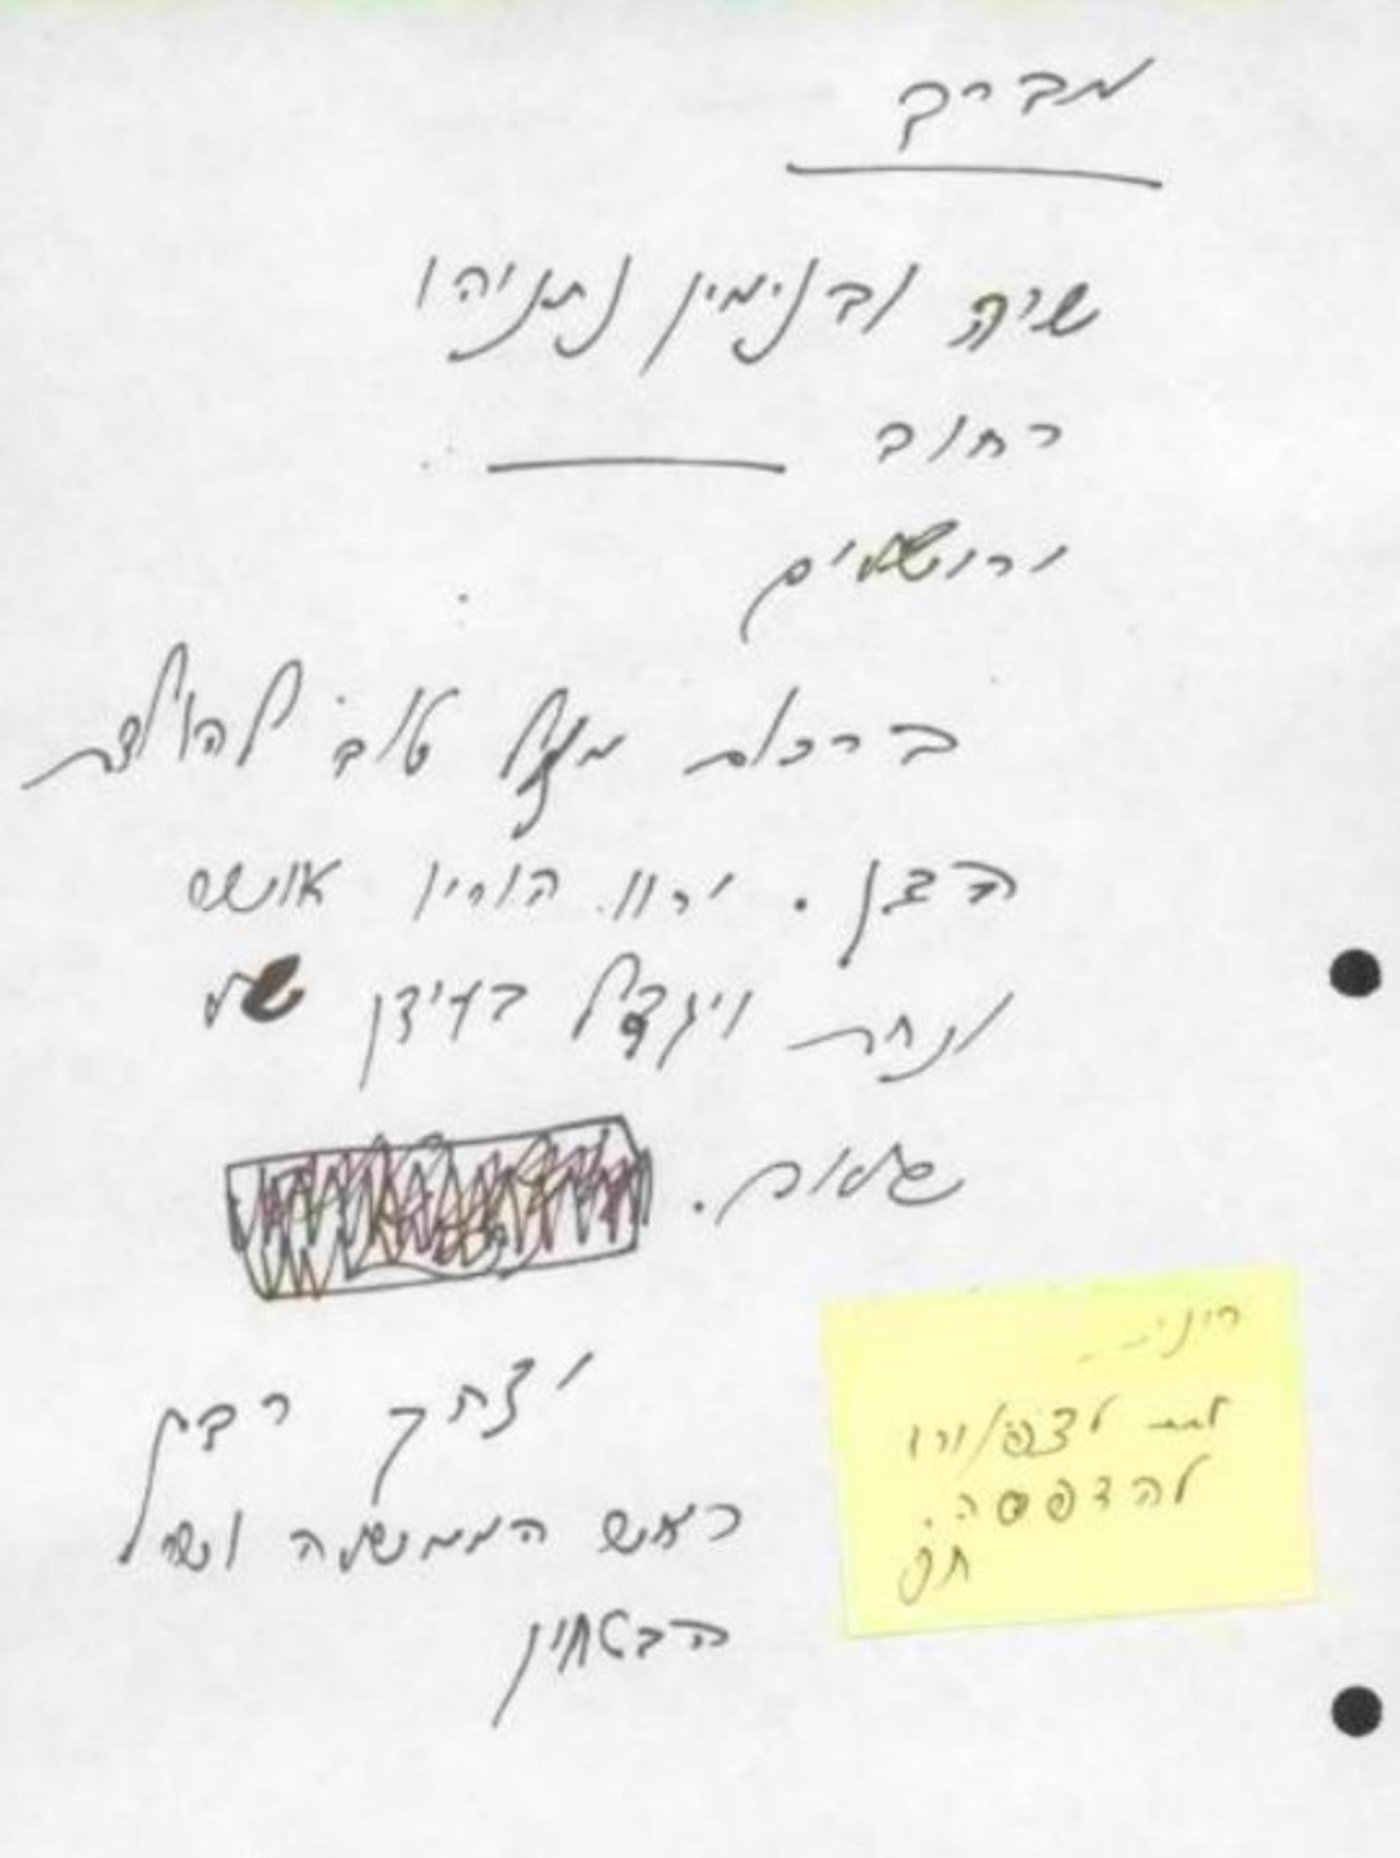 מברק
שרה ובנימין נתניהו
רחוב
ירושלים
ברכות מזל טוב להולדת
הבן. ירוו הוריו אושר
ונחת ויגדל בעידן של
שלום.
יצחק רבין
ראש הממשלה ושר
הבטחון
רינת
להדפסה.